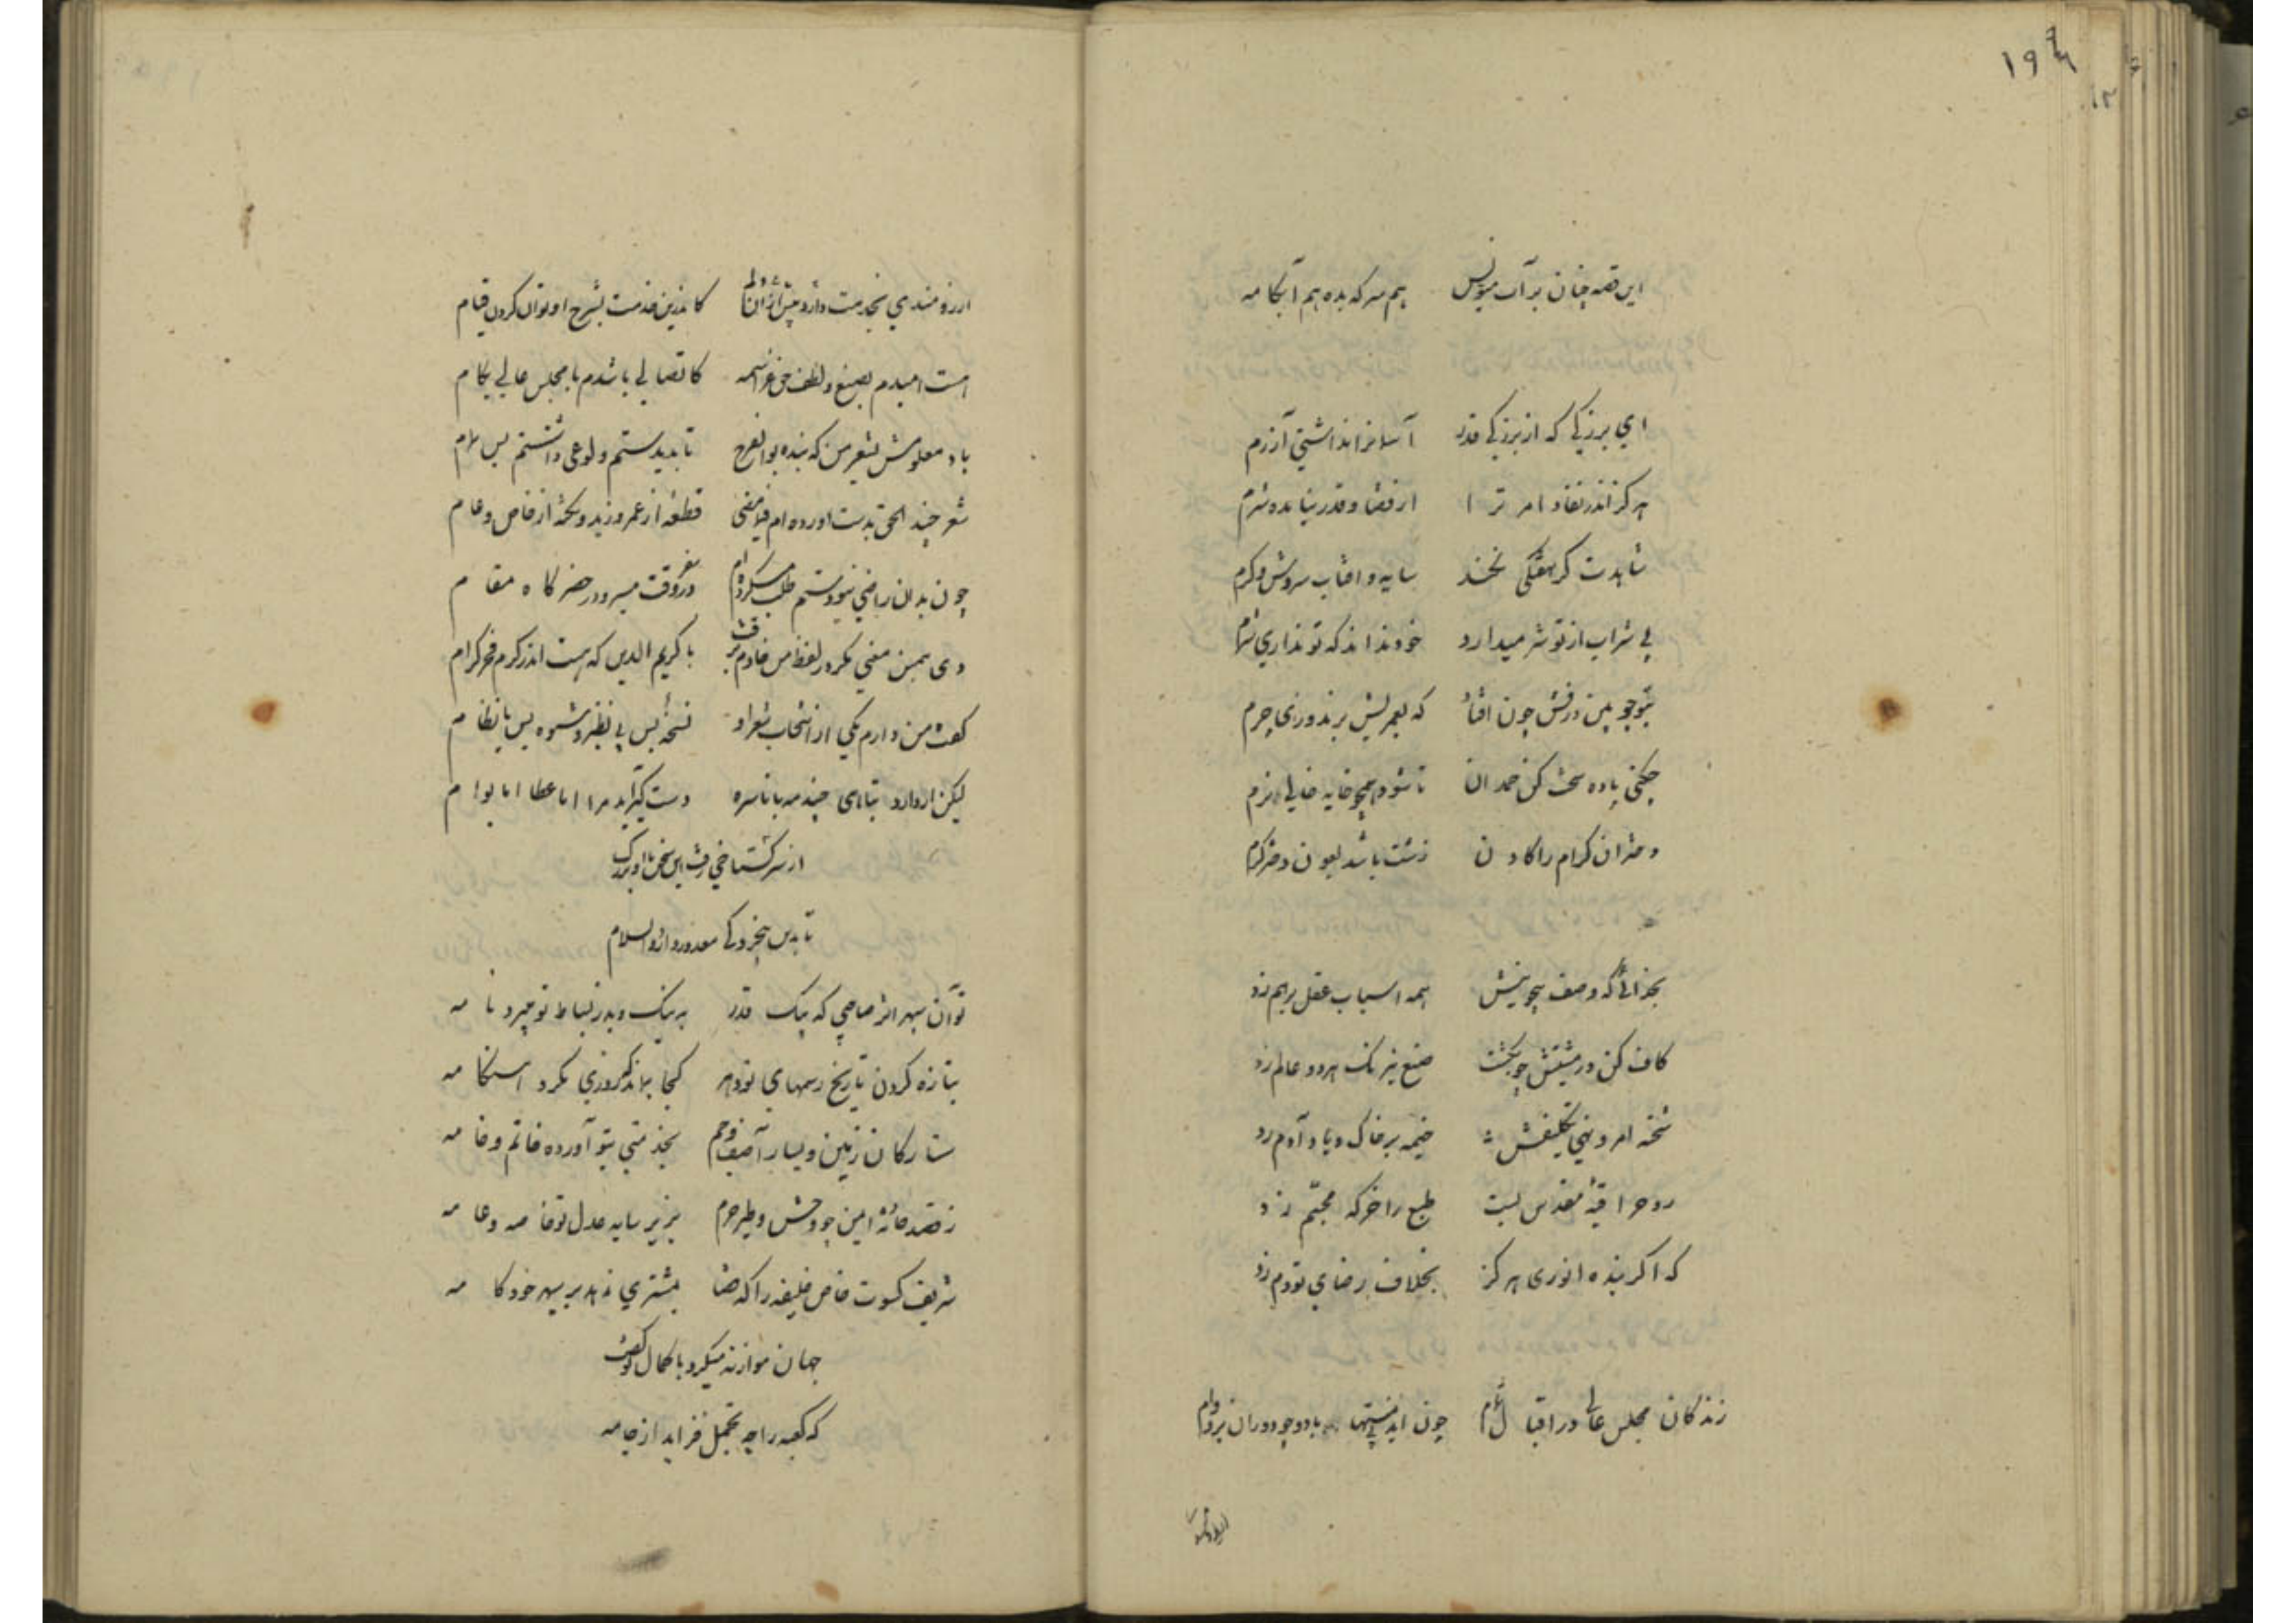 ۱۹۶
این قصه چنان بر آب منویس    هم سرکه بده هم آبکامه
ای بزرگی که از بزرگی قدر    آسمانرا نداشتی آزرم
هرکز اندر نفاذ امر ترا    از قضا و قدر نیامده شرم
شاهدت کر نخندد    سایه و افتاب سروش و کرم
بی شراب از تو شرمیدارد    خود نداند که تو نداری شرم
که بعمریش برندوزی چرم
باده سخت کن    تا شود همچو خایه خالی نرم
دختران کرام را کادن    زشت باشد بعون دختر کرم
بخدائی که وصف بیچونیش    همه اسباب عقل برهم زد
کاف کن در مشیتش چو بکشت    صنع بیرنک هردو عالم زد
شحنه امر و نهی تکلیفش    خیمه بر خاک و باد آدم زد
روح را قبهٔ مقدس بست    طبع را خرکه مجسم زد
که اکر بنده انوری هرکز    بخلاف رضای تو دم زد
زندکان مجلس عالی در اقبال تمام    چون    باد و چو دوران بر دوام
ارزومندی بخدمت دارد بیش از ان    کاندرین خدمت بشرح او توان کردن قیام
هست امیدم بصنع و لطف حق عز اسمه    کاتصالی باشدم با مجلس عالی بکام
باد معلومش شعر من که بنده بوالفرج    تا بدیدستم ولوعی داشتستم بس تمام
شعر چند الحق بدست اورده ام فیما مضی    قطعه از عمرو و زید و نکته از خاص و عام
چون بدان راضی نبودستم طلب میکرده ام    در سفر وقت مسیر و در حضر کاه مقام
دی همین معنی مکر در لفظ من خادم برفت    با کریم الدین که هست اندر کرم فخر کرام
کفت من دارم یکی از انتخاب شعر او    نسخهٔ بس بی نظیر و شیوهٔ بس با نظام
لیکن ار دارد    دستکیر اید مرا اما عطا اما بوام
از سر کستاخی رفت این سخن با او بزرک
تا بدین بیخردکی معذور دارد والسلام
تو آن سپهر اثر صاحبی که پیک قدر    به نیک و بد ز بساط تو میبرد نامه
بتازه کردن تاریخ رسمهای تو دهر    کجا بماند که روزی نکرد هنکامه
ستارکان ز یمین و یسار آصف و جم    بخدمتی بتو آورده خاتم و خامه
ز قصد حادثه ایمن چو وحش و طیر حرم    بزیر سایه عدل تو خاصه و عامه
شریف کسوت خاص خلیفه را که قضا    بمشتری ندهد بر سپهر خودکامه
جهان موازنه میکرد با کمال تو کفت
که کعبه را چه تجمل فزاید از جامه